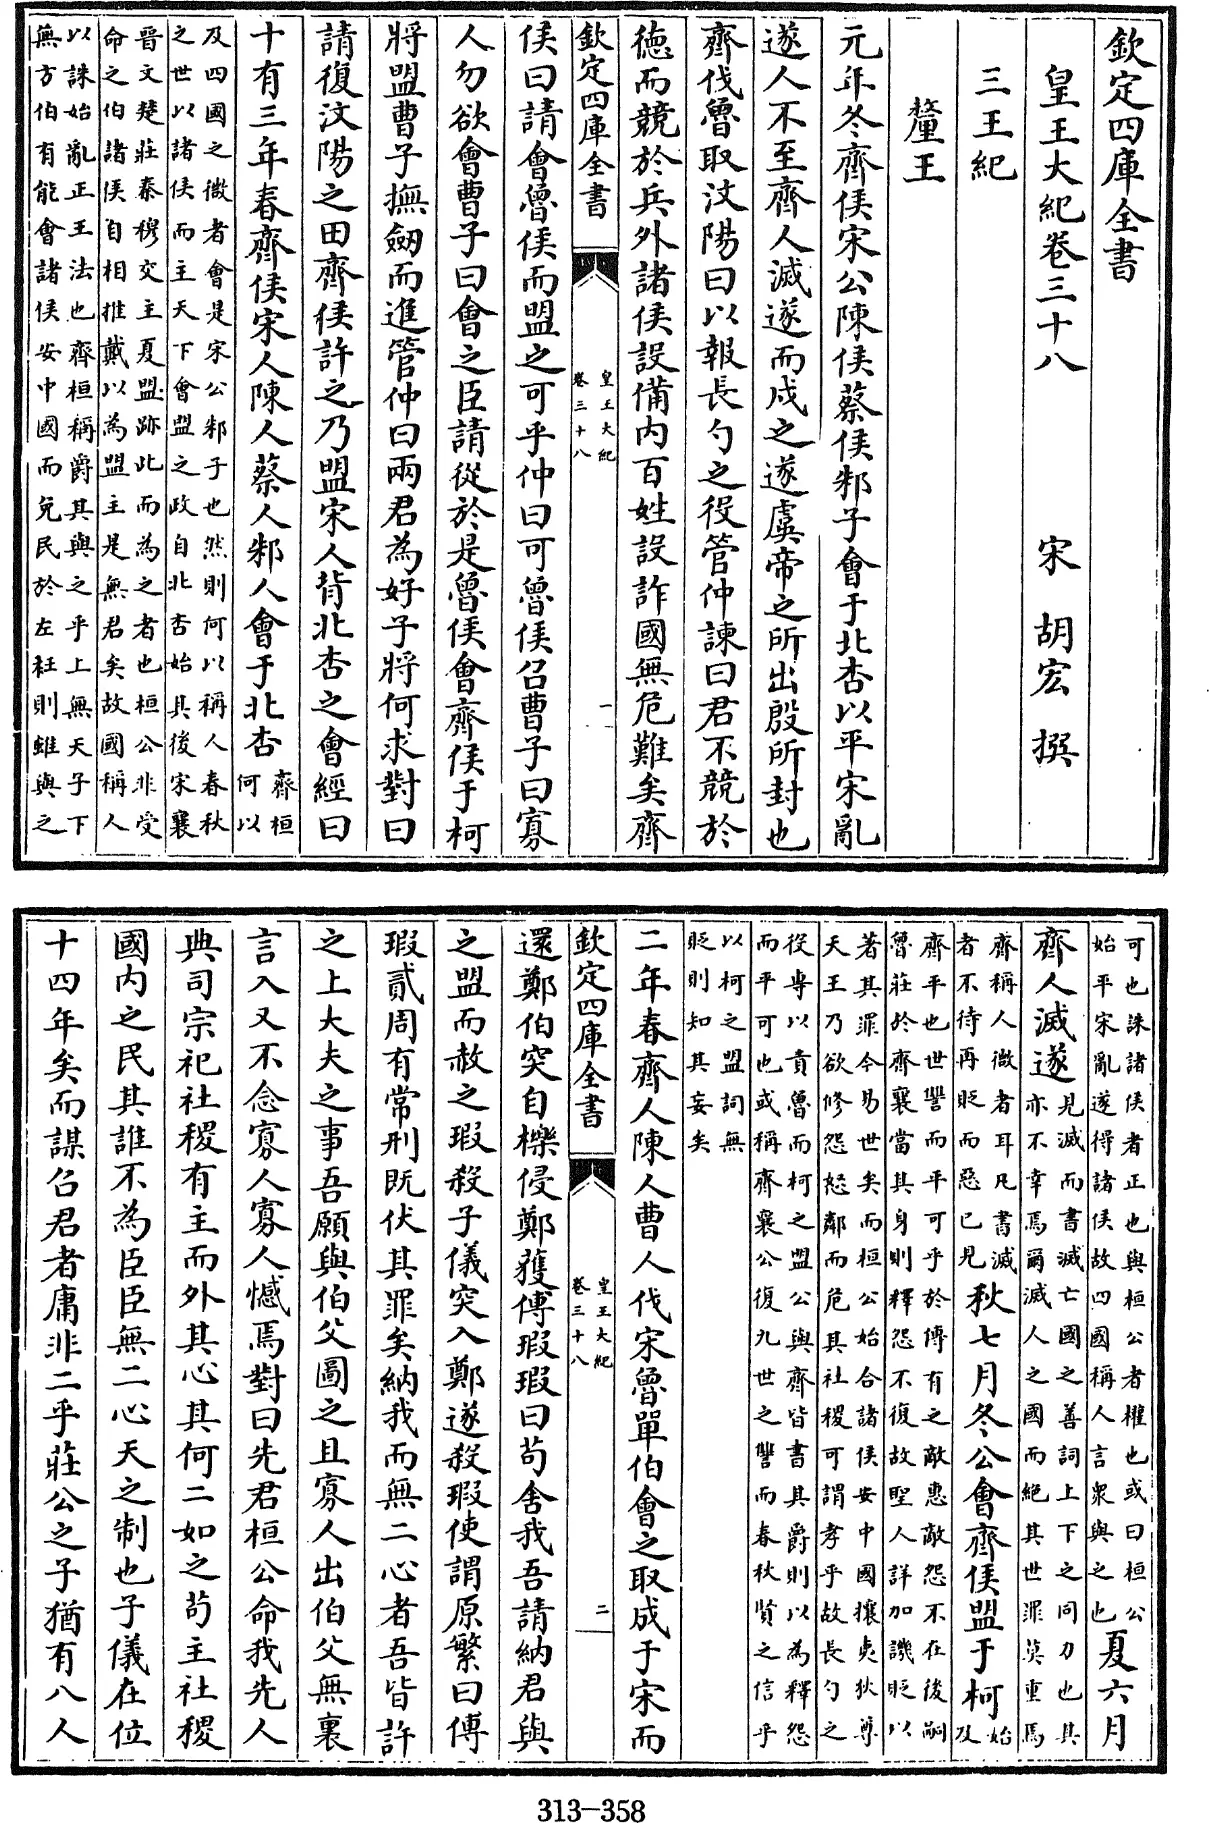 欽定四庫全書
皇王大紀卷三十八
宋 胡宏 撰
三王紀
釐王
元年冬齊侯宋公陳侯蔡侯邾子會于北杏以平宋亂
遂人不至齊人滅遂而戍之遂虞帝之所出殷所封也
齊伐魯取汶陽曰以報長勺之役管仲諫曰君不競於
德而競於兵外諸侯設備内百姓設詐國無危難矣齊
欽定四庫全書
皇王大紀
卷三十八
一
侯曰請會魯侯而盟之可乎仲曰可魯侯召曹子曰寡
人勿欲會曹子曰會之臣請從於是魯侯會齊侯于柯
將盟曹子撫劒而進管仲曰兩君為好子將何求對曰
請復汶陽之田齊侯許之乃盟宋人背北杏之會經曰
十有三年春齊侯宋人陳人蔡人邾人會于北杏齊桓
何以
及四國之微者會是宋公邾子也然則何以稱人春秋
之世以諸侯而主天下會盟之政自北杏始具後宋襄
晉文楚莊秦穆交主夏盟跡此而為之者也桓公非受
命之伯諸侯自相推戴以為盟主是無君矣故國稱人
以誅始亂正王法也齊桓稱爵其與之乎上無天子下
無方伯有能會諸侯安中國而免民於左衽則雖與之
可也誅諸侯者正也與桓公者權也或曰桓公
始平宋亂遂得諸侯故四國稱人言衆與之也夏六月
齊人滅遂見滅而書滅亡國之善詞上下之同力也其
亦不幸焉爾滅人之國而絶其世罪莫重焉
齊稱人微者耳凡書滅
者不待再貶而惡已見秋七月冬公會齊侯盟于柯始
及
齊平也世讐而平可乎於傳有之敵惠敵怨不在後嗣
魯莊於齊襄當其身則釋怨不復故聖人詳加譏貶以
著其罪今易世矣而桓公始合諸侯安中國攘夷狄尊
天王乃欲修怨怒鄰而危其社稷可謂孝乎故長勺之
役專以責魯而柯之盟公與齊皆書其爵則以為釋怨
而平可也或稱齊襄公復九世之讐而春秋賢之信乎
以柯之盟詞無
貶則知其妄矣
二年春齊人陳人曹人伐宋魯單伯會之取成于宋而
欽定四庫全書
皇王大紀
卷三十八
二
還鄭伯突自櫟侵鄭獲傅瑕瑕曰苟舍我吾請納君與
之盟而赦之瑕殺子儀突入鄭遂殺瑕使謂原繁曰傅
瑕貳周有常刑既伏其罪矣納我而無二心者吾皆許
之上大夫之事吾願與伯父圖之且寡人出伯父無裏
言入又不念寡人寡人憾焉對曰先君桓公命我先人
典司宗祀社稷有主而外其心其何二如之苟主社稷
國内之民其誰不為臣臣無二心天之制也子儀在位
十四年矣而謀召君者庸非二乎莊公之子猶有八人
313-358